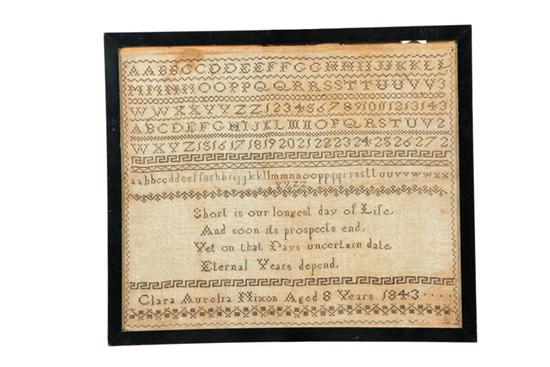 AABBCCDDEEFFGGHHIIJJKKLL
MMNNOOPPQQRRSSTTUUVV3
WWXXYYZZ1234567891011121343
ABCDEFGHIJKLMNOPQRSTUV2
WXYZ151617181920212223242526272
aabbccddeeffgghhiijjkkllmmnnooppqqrrssttuuvvwwxx
yyzz
Short is our longest day of Life,
And soon its prospects end,
Yet on that Days uncertain date,
Eternal Years depend,
Clara Aurelia Nixon Aged 8 Years 1843....